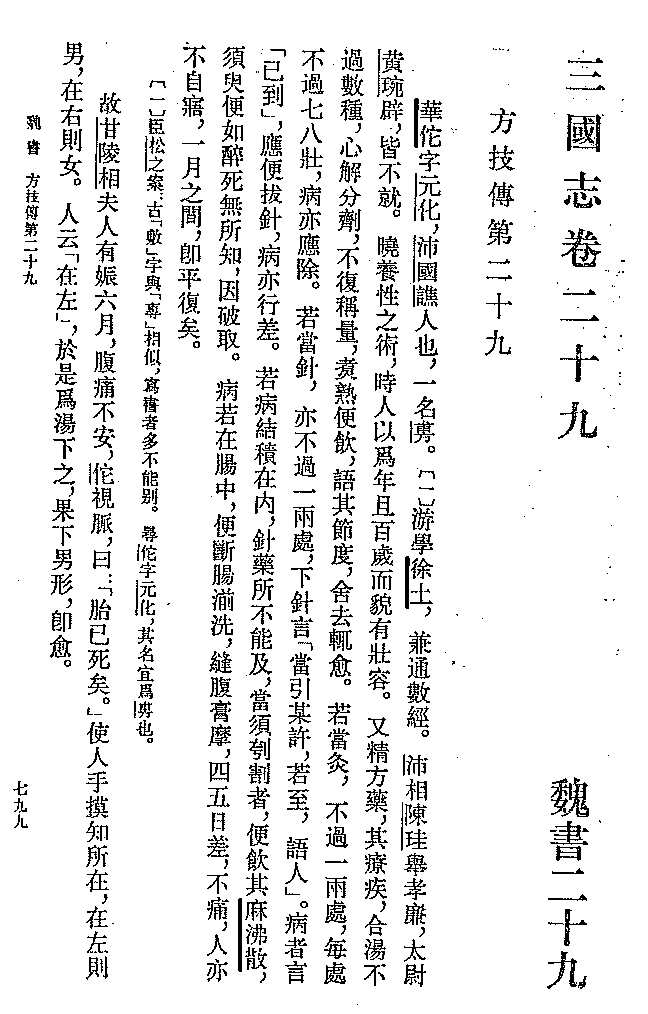 三國志卷二十九
魏書二十九
方技傳第二十九
華佗字元化，沛國譙人也，一名旉。〔一〕游學徐土，兼通數經。沛相陳珪舉孝廉，太尉
黃琬辟，皆不就。曉養性之術，時人以爲年且百歲而貌有壯容。又精方藥，其療疾，合湯不
過數種，心解分劑，不復稱量，煑熟便飲，語其節度，舍去輒愈。若當灸，不過一兩處，每處
不過七八壯，病亦應除。若當針，亦不過一兩處，下針言「當引某許，若至，語人」。病者言
「已到」，應便拔針，病亦行差。若病結積在內，針藥所不能及，當須刳割者，便飲其麻沸散，
須臾便如醉死無所知，因破取。病若在腸中，便斷腸湔洗，縫腹膏摩，四五日差，不痛，人亦
不自寤，一月之間，卽平復矣。
〔一〕臣松之案：古「敷」字與「尃」相似，寫書者多不能別。尋佗字元化，其名宜爲旉也。
故甘陵相夫人有娠六月，腹痛不安，佗視脈，曰：「胎已死矣。」使人手摸知所在，在左則
男，在右則女。人云「在左」，於是爲湯下之，果下男形，卽愈。
魏書　方技傳第二十九
七九九